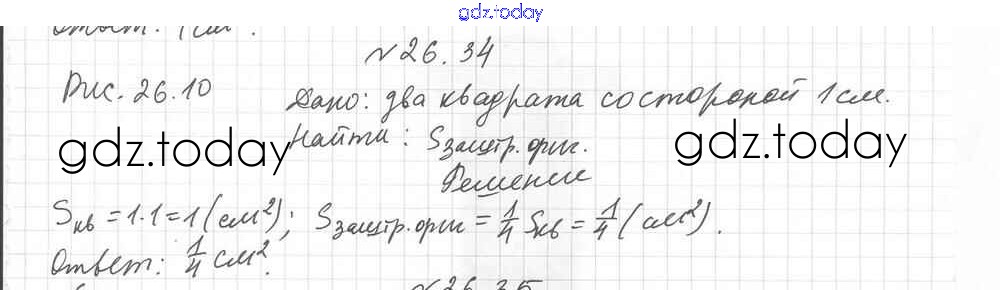 gdz.today
Ответ: 1 см².
№26.34
Рис. 26.10
Дано: два квадрата со стороной 1 см.
Найти: Sзаштр. фиг.
gdz.today
gdz.today
Решение
Sкв = 1·1 = 1 (см²); Sзаштр. фиг = 1/4 Sкв = 1/4 (см²).
Ответ: 1/4 см².
№26.35